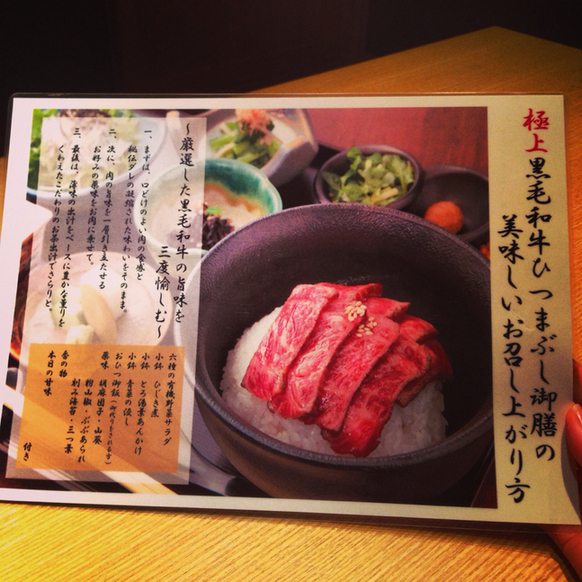 極上黒毛和牛ひつまぶし御膳の
美味しいお召し上がり方
～厳選した黒毛和牛の旨味を
三度愉しむ～
一、まずは、口どけのよい肉の食感と
秘伝ダレの凝縮された味わいをそのまま。
二、次に、肉の旨味を一層引き立たせる
お好みの薬味をお肉に乗せて。
三、最後は、薄味の出汁をベースに豊かな薫りを
くわえたこだわりのお茶出汁でさらりと。
六種の有機野菜サラダ
小鉢 ひじき煮
小鉢 とろ湯葉あんかけ
小鉢 青菜の浸し
おひつ御飯(御代りをされる方)
薬味 胡麻団子・山葵
粉山椒・ぶぶあられ
刻み海苔・三つ葉
香の物
本日の甘味
付き